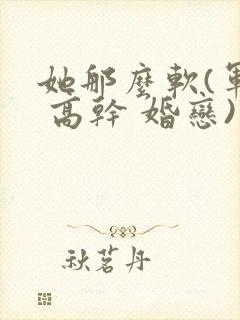 她那麼軟(軍
高幹 婚戀)
秋茗丹